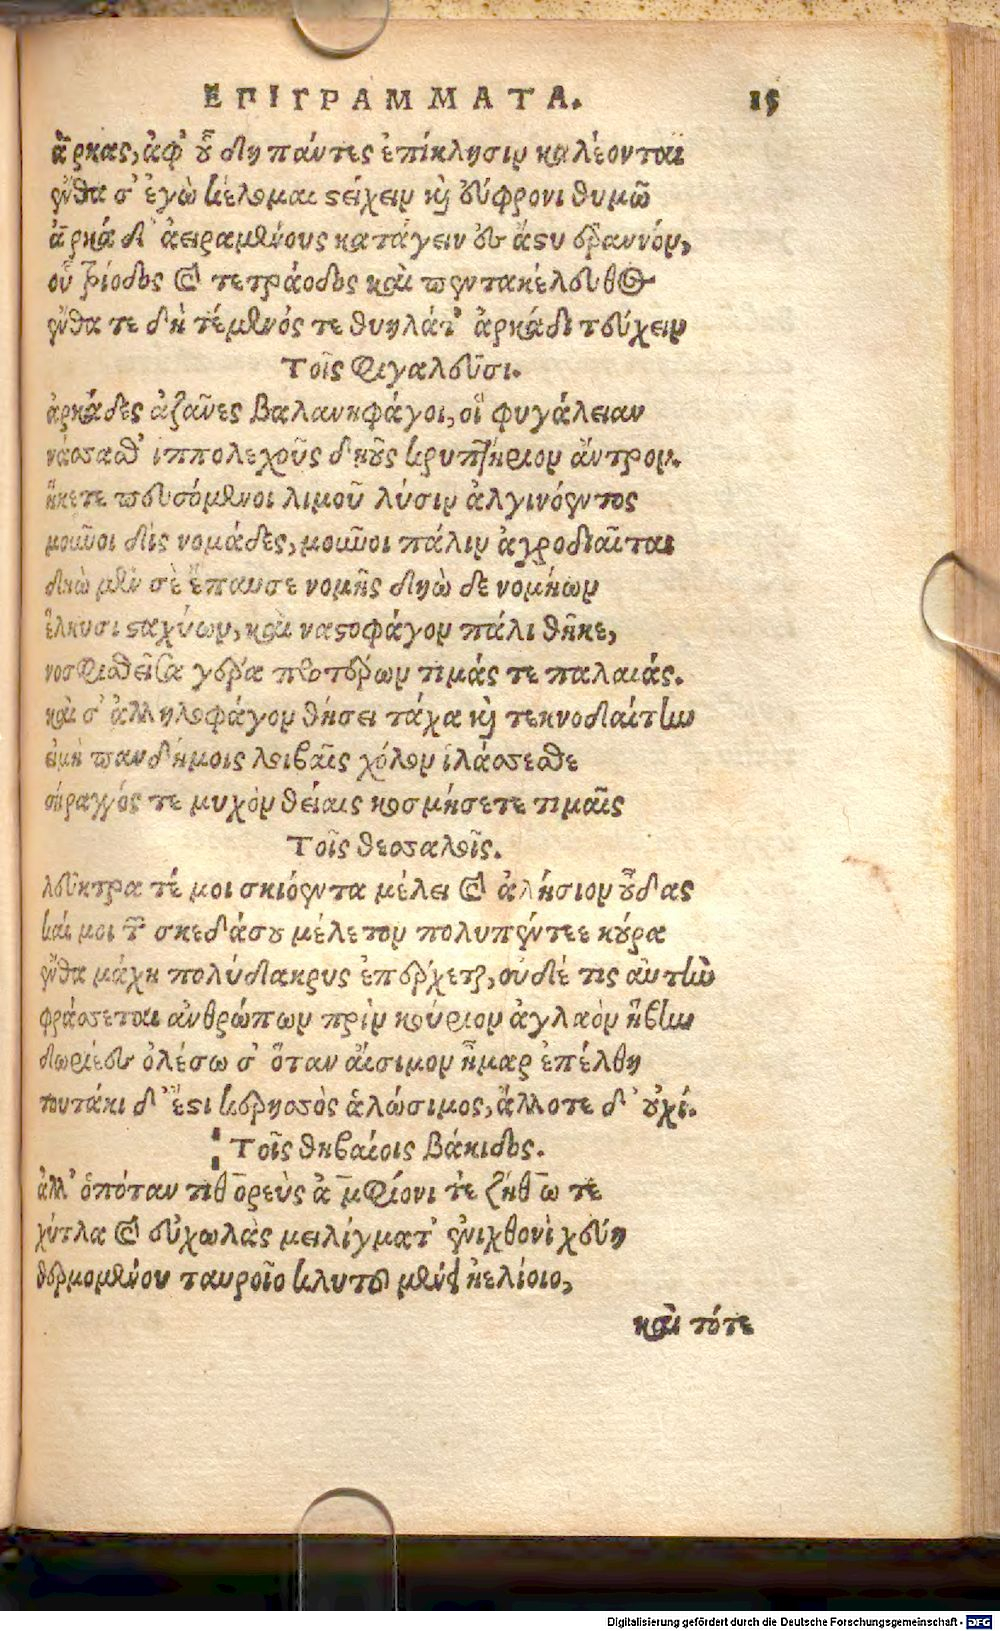 ΕΠΙΓΡΑΜΜΑΤΑ. 15
ἄρκας, ἀφ' οὗ δη πάντες ἐπίκλησιν καλέονται
ἔνθα σ' ἐγὼ κέλομαι στείχειν καὶ εὔφρονι θυμῷ
ἀρκάδ' ἀειραμένους κατάγειν εἰς ἄστυ ἐραννόν,
οὗ τρίοδος καὶ τετράοδος καὶ πεντακέλευθος
ἔνθα τε δὴ τέμενός τε θυηλάς τ' ἀρκάδι τεύχειν
Τοῖς Φιγαλεῦσι.
ἀρκάδες ἀζᾶνες βαλανηφάγοι, οἳ φυγάλειαν
νάσσασθ' ἱππολεχοῦς δηοῦς κρυπτήριον ἄντρον.
ἥκετε πευσόμενοι λιμοῦ λύσιν ἀλγινόεντος
μοῦνοι δὶς νομάδες, μοῦνοι πάλιν ἀγροδιαῖται
δηὼ μὲν σὲ ἔπαυσε νομῆς δηὼ δε νομήων
ἑλκυσισταχύων, καὶ ναστοφάγον πάλι θῆκε,
νοσφισθεῖσα γέρα προτέρων τιμάς τε παλαιάς.
καὶ σ' ἀλληλοφάγον θήσει τάχα καὶ τεκνοδαίτην
εἰ μὴ πανδήμοις λοιβαῖς χόλον ἱλάσσεσθε
σήραγγός τε μυχὸν θείαις κοσμήσετε τιμαῖς
Τοῖς θεσσαλοῖς.
λεῦκτρα τέ μοι σκιόεντα μέλει καὶ ἀλήσιον οὖδας
καί μοι τῶν σκεδάσου μέλετον πολυπενθέε κούρα
ἔνθα μάχη πολύδακρυς ἐπέρχεται, οὐδέ τις αὐτὴν
φράσσεται ἀνθρώπων πρὶν κούριον ἀγλαὸν ἥβην
δωριέες ὀλέσωσ' ὅταν αἴσιμον ἦμαρ ἐπέλθῃ
τουτάκι δ' ἔστι κερησσὸς ἁλώσιμος, ἄλλοτε δ' οὐχί.
Τοῖς θηβαίοις βάκιδος.
ἀλλ' ὁπόταν τιθορεὺς ἀμφίονί τε ζήθῳ τε
χύτλα καὶ εὐχωλὰς μειλίγματ' ἐνιχθονὶ χεύῃ
θερμομένου ταυροῖο κλυτοῦ μένει ἠελίοιο,
καὶ τότε
Digitalisierung gefördert durch die Deutsche Forschungsgemeinschaft - DFG